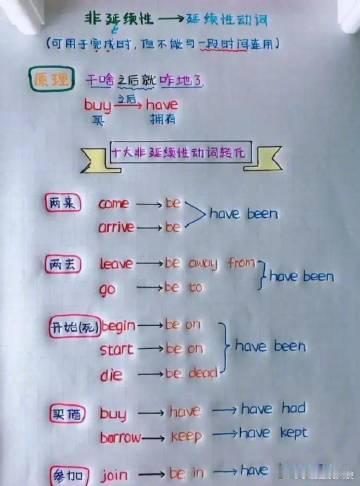 非延续性 → 延续性动词
(可用于完成时, 但不能与一段时间连用)
原理 干啥之后就咋地了
buy 之后→ have
买 拥有
十大非延续性动词转化
两来 come → be
arrive → be
have been
两去 leave → be away from
go → be to
have been
开始(死) begin → be on
start → be on
die → be dead
have been
买借 buy → have → have had
borrow → keep → have kept
参加 join → be in → have